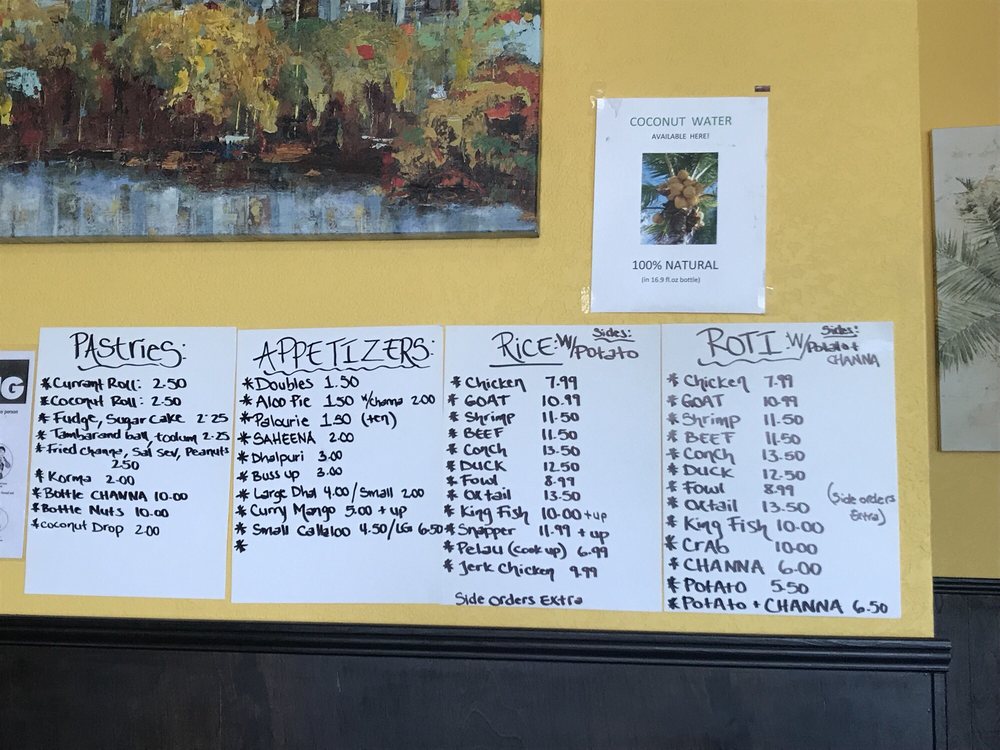 COCONUT WATER
AVAILABLE HERE!
100% NATURAL
(in 16.9 fl.oz bottle)
NG
PAstries:
* Currant Roll: 2.50
* Coconut Roll: 2.50
* Fudge, Sugar Cake 2.25
* Tambarand ball, toolum 2.25
* Fried channa, Sal sev, Peanuts
2.50
* Korma 2.00
* Bottle CHANNA 10.00
* Bottle Nuts 10.00
* coconut Drop 2.00
APPETIZERS:
* Doubles 1.50
* Aloo Pie 1.50 w/channa 2.00
* Palourie 1.50 (ten)
* SAHEENA 2.00
* Dhalpuri 3.00
* Buss up 3.00
* Large Dhal 4.00/Small 2.00
* Curry Mango 5.00 + up
* Small Callaloo 4.50/LG 6.50
*
RICE: W/Potato
Sides:
* Chicken 7.99
* GOAT 10.99
* Shrimp 11.50
* BEEF 11.50
* Conch 13.50
* DUCK 12.50
* Fowl 8.99
* Oxtail 13.50
* King Fish 10.00 + up
* Snapper 11.99 + up
* Pelau (cook up) 6.99
* Jerk Chicken 9.99
Side Orders Extra
ROTI: W/Potato +
Sides:
CHANNA
* Chicken 7.99
* GOAT 10.99
* Shrimp 11.50
* BEEF 11.50
* Conch 13.50
* DUCK 12.50
* Fowl 8.99
* Oxtail 13.50
(Side orders
Extra)
* King Fish 10.00
* CrAb 10.00
* CHANNA 6.00
* POTATO 5.50
* POTATO + CHANNA 6.50